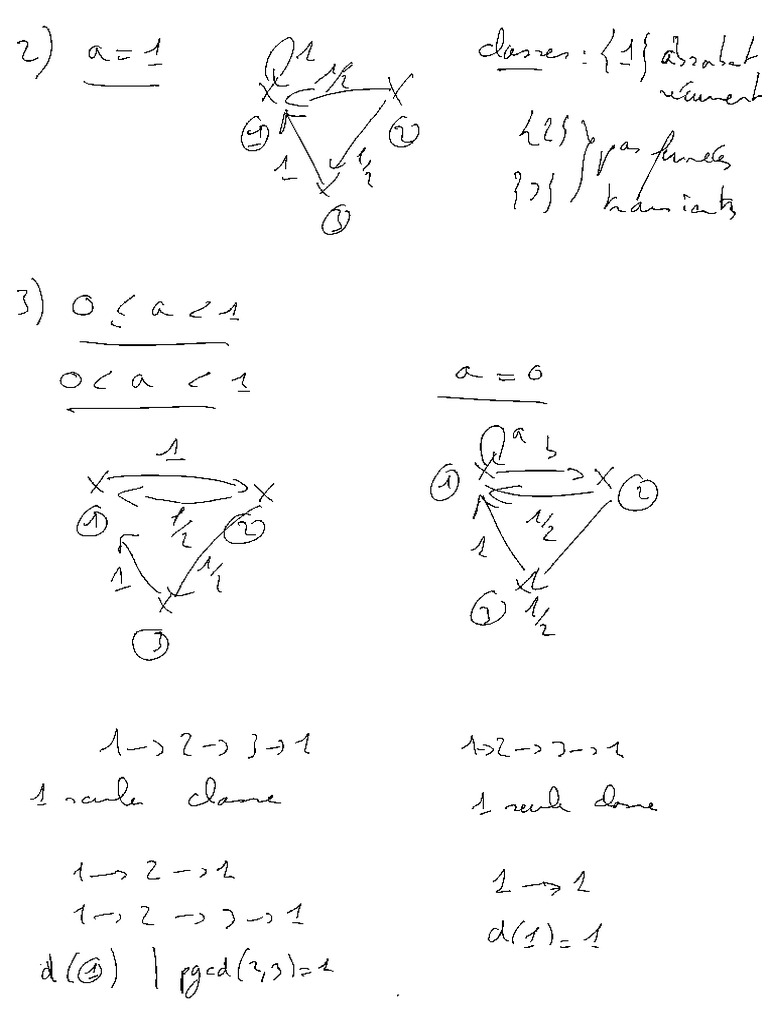 2) a = 1
1
1/2
1
2
1
1/2
3
classes : {1} absorbant
récurrent
{2}
{3}
pas fermées
transients
3) 0 ≤ a < 1
0 < a < 1
1
1
1/2
2
1
1/2
3
a = 0
a
b
1
1/2
2
1
3
1/2
1 → 2 → 3 → 1
1 seule classe
1 → 2 → 1
1 → 2 → 3 → 1
d(1) | pgcd(2,3) = 1
1 → 2 → 3 → 1
1 seule classe
1 → 1
d(1) = 1